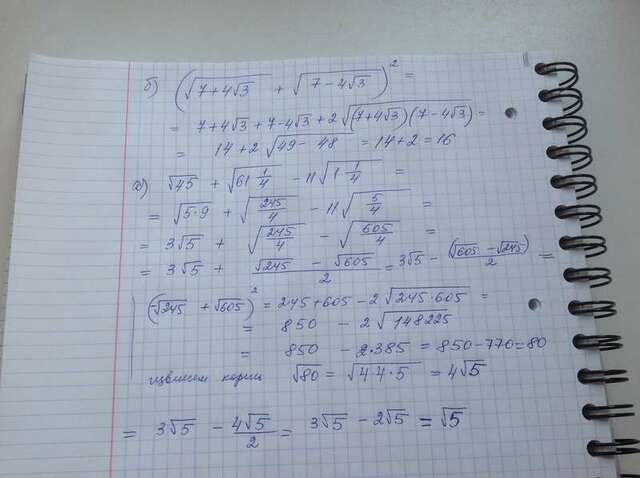 б) (√(7+4√3) + √(7-4√3))² =
= 7+4√3+7-4√3+2√((7+4√3)(7-4√3)) =
= 14+2√(49-48) = 14+2=16
а) √45 + √(61 1/4) - 11√(1 1/4) =
= √(5·9) + √(245/4) - 11√(5/4) =
= 3√5 + √(245/4) - √(605/4) =
= 3√5 + (√245 - √605)/2 = 3√5 - (√605 - √245)/2 =
(-√245 + √605)² = 245+605-2√(245·605) =
= 850 - 2√148225
= 850 - 2·385 = 850-770=80
корни √80 = √(4·4·5) = 4√5
= 3√5 - 4√5/2 = 3√5 - 2√5 = √5